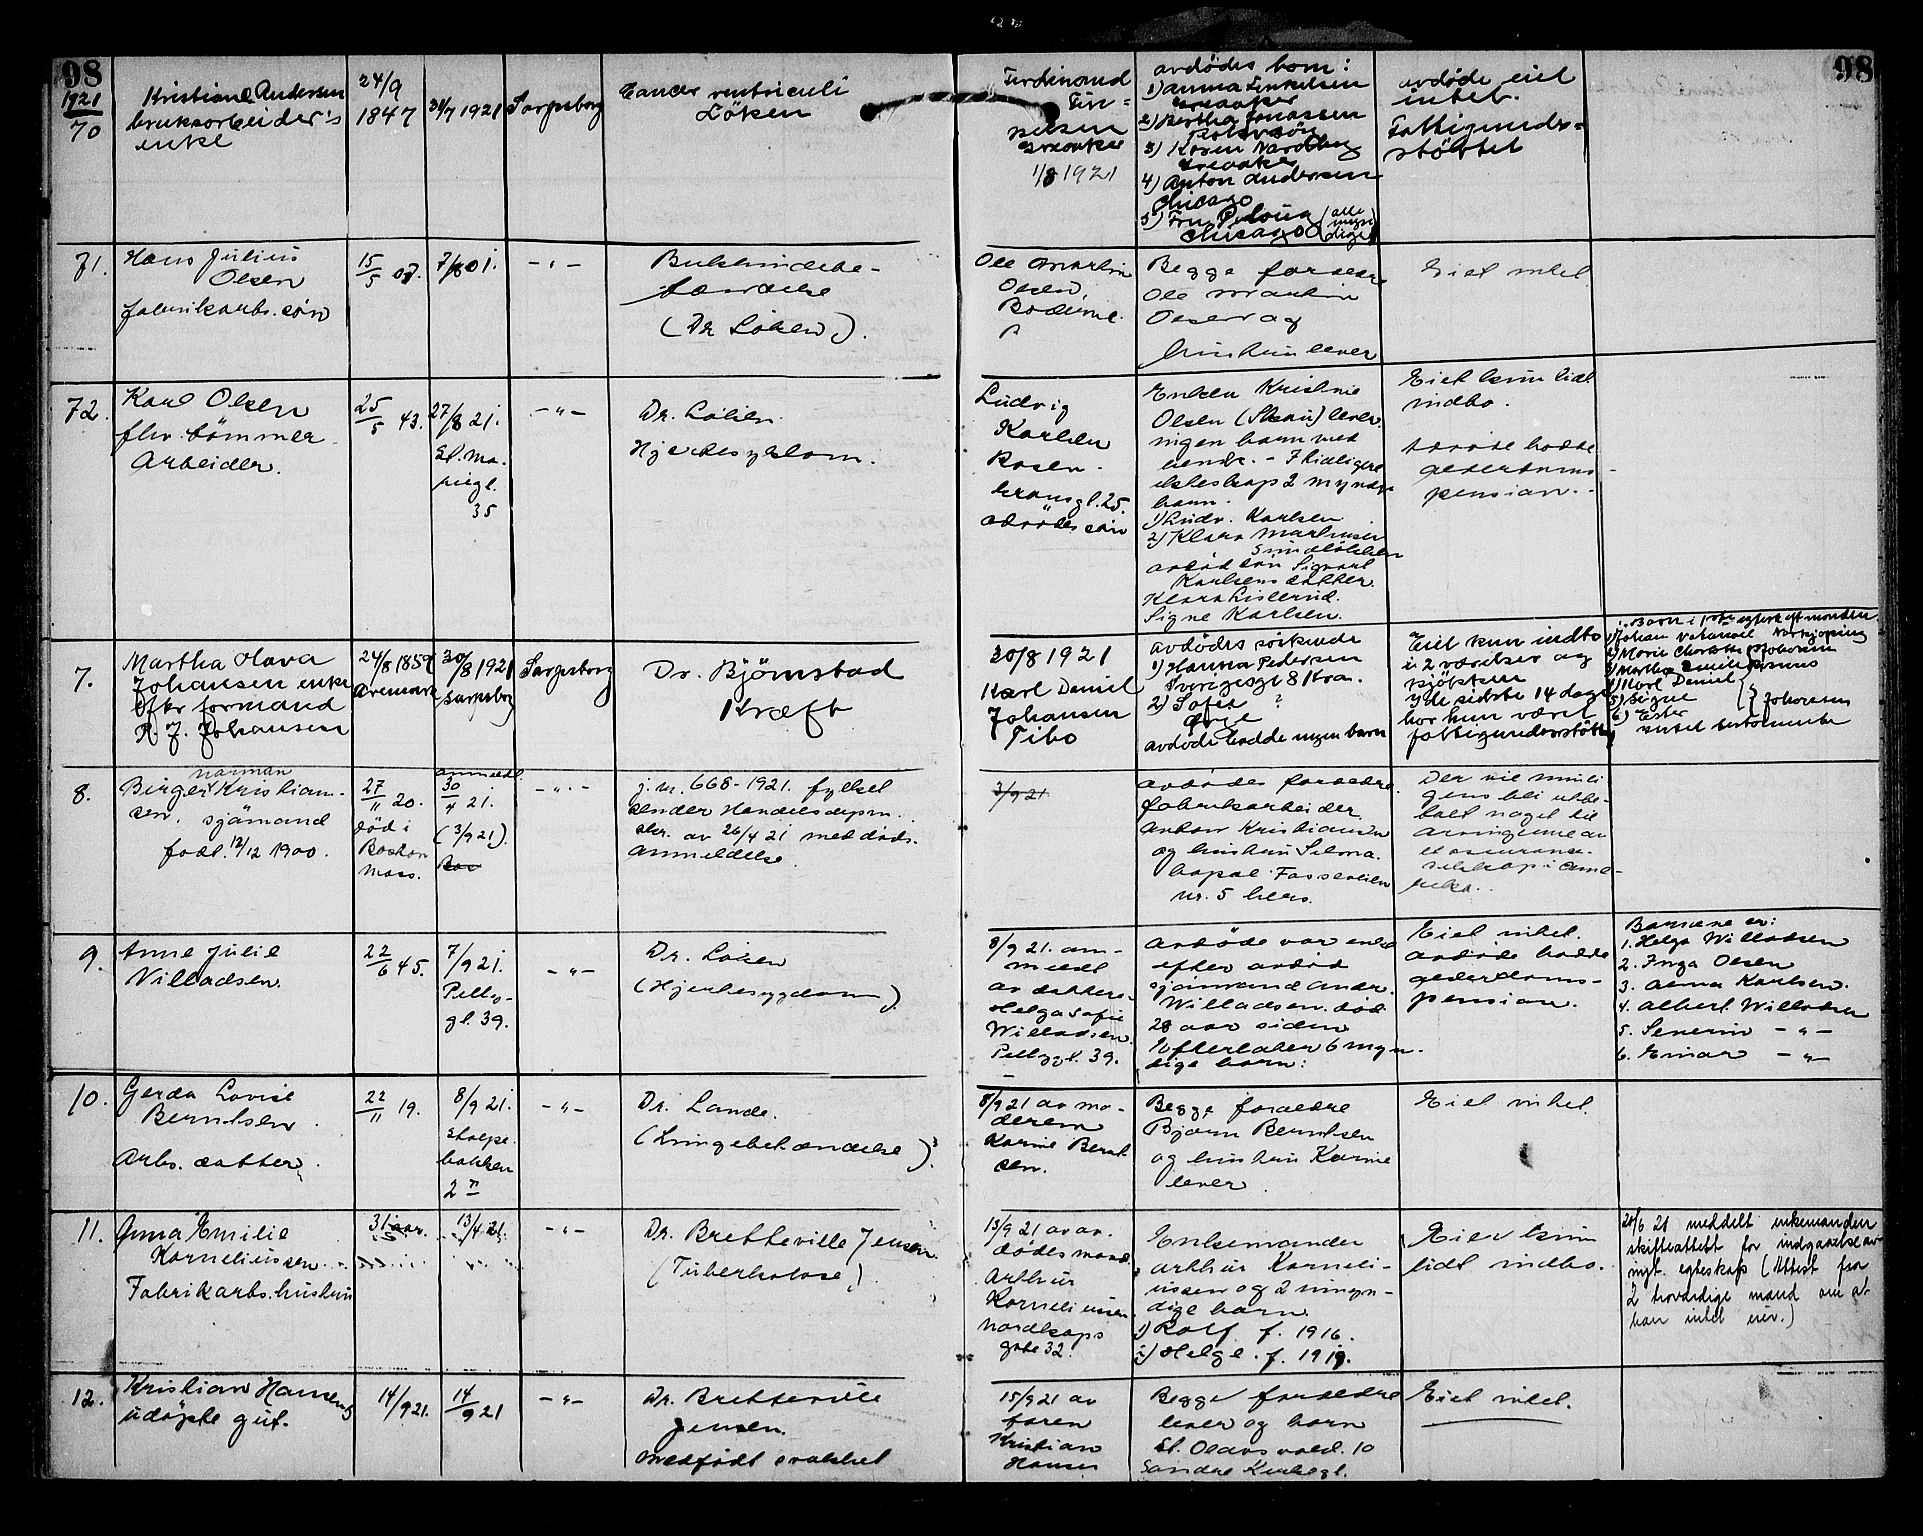 98
98
1921
70
Kristiane Andersen
bruksarbeider's
enke
24/9
1847
31/7 1921
Sarpsborg
Cancer ventriculi
Löken
Ferdinand
Fin-
nelsen
Greaaker
1/8 1921
avdödes barn:
1) Anna Finnelsen
Greaaker
2) Bertha Jonassen
Rolvsöy
3) Karen Nordberg
Greaaker
4) Anton Andersen
Chicago
5) Fru
Chicago
(alle
myn-
dige)
avdöde eiet
intet.
Fattigunder-
stöttet
71.
Hans Julius
Olsen
fabrikarb. sön
15/5 07.
7/8 01.
- " -
betændelse
(Dr Löken).
Ole Martin
Olsen,
Begge forældre
Ole Martin
Olsen og
hustru lever
Eiet intet
72.
Karl Olsen
fhv. tömmer
Arbeider.
25/5 43.
27/8 21.
St. Ma-
riegt.
35
- " -
Dr. Löken
Hjertesykdom.
Ludvig
Karlsen
Rosen-
kransgt. 25.
avdödes sön
Enken Kristine
Olsen (Skau) lever
ingen barn med
hende. - I tidligere
ekteskap 2 myndige
barn.
1) Ludv. Karlsen
2) Klara Marthinsen
avdöd sön Sigvart
Karlsens datter
Klara Lislerud.
Signe Karlsen.
Eiet kun lidt
indbo.
avdöde hadde
alderdoms-
pension.
7.
Martha Olava
Johansen enke
efter formand
R. J. Johansen
24/8 1859
Aremark
30/8 1921
Sarpsborg
Sarpsborg
Dr. Björnstad
Kræft
30/8 1921
Karl Daniel
Johansen
Tibo
avdödes söskende
1) Hanna Pedersen
Sverigesgt 8 Htra.
2) Sofie ?
avdöde hadde ingen barn
Eiet kun indbo
i 2 værelser og
kjökken
I de sidste 14 dage
har hun været
fattigunderstöttet
Barn i 1ste egtesk. eft manden
1) Johan Natanael Norkjöping
2) Marie Charlotte Johansen
3) Martha Emilie Rasmus
4) Karl Daniel
5) Signe
6) Ester
} Johansen
intet testamente
8.
Birger Norman Kristian-
sen, sjömand
födt. 12/12 1900.
27/11 20.
död i
Boston
Mass.
anmeldt
30/4 21.
(3/9 21).
- " -
j.nr. 668-1921. fylket
sender Handelsdepm.
skr. av 26/4 21 med döds-
anmeldelse
3/9 21
avdödes forældre
fabrikarbeider
Anton Kristiansen
og hustru Selma.
bopæl Fosseveien
nr. 5 lever.
Der vil muli
gens bli utbe-
talt noget til
arvingerne av
et assuranse-
selskap i Ame-
rika.
9.
Anne Julie
Villadsen.
22/6 45.
7/9 21.
Pellyg-
gt. 39.
- " -
Dr. Löken
(Hjertesygdom).
8/9 21. an-
meldt
av datteren
Helga Sofie
Willadsen.
Pellygt. 39.
Avdöde var enke
efter avdöd
sjömand Andr.
Willadsen. död
28 aar siden
Efterlater 6 myn-
dige barn:
Eiet intet.
Avdöde hadde
alderdoms-
pension.
Barnene er:
1. Helga Willadsen
2. Inga Olsen
3. Anna Karlsen.
4. Albert Willadsen
5. Severin - " -
6. Einar - " -
10.
Gerda Lovise
Berntsen
Arb. datter
22/11 19.
8/9 21.
Stolpe-
bakken
2 n
- " -
Dr. Lande.
(Lungebetændelse).
8/9 21 av mo-
deren
Karine Bernt-
sen.
Begge forældre
Bjarn Berntsen
og hustru Karine
lever
Eiet intet.
11.
Anna Emilie
Korneliussen
Fabrikarbs. hustru
31 aar.
13/4 21.
- " -
Dr. Bretteville Jensen.
(Tuberkulose)
13/9 21 av av-
dödes mand
Arthur
Korneliussen
Nordkaps
gate 32.
Enkemanden
Arthur Korneli-
ussen og 2 umyn-
dige barn
1) Rolf f. 1916.
2) Helge. f. 1919.
Eier kun
lidt indbo.
20/6 21 meddelt enkemanden
skifteattest for indgaaelse av
nyt egteskap (Attest fra
2 troværdige mænd om at
han intet eier.)
12.
Kristian Hansens
udöpte gut.
14/9 21.
14/9 21
- " -
Dr. Bretteville
Jensen.
Medfödt svakhet
15/9 21 av
faren
Kristian
Hansen
Begge forældre
lever og barn
St. Olavs vold. 10
Söndre Kirkegt.
Eiet intet.